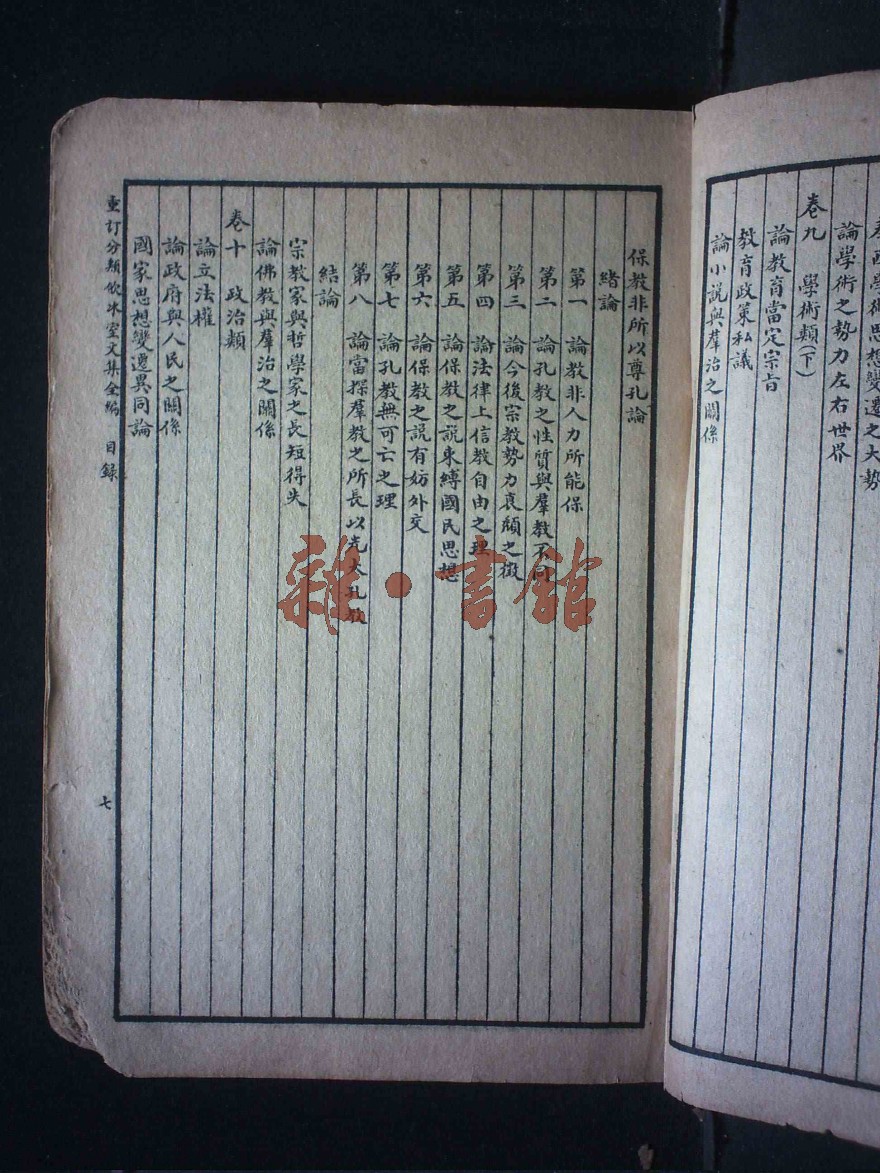 學術思想變遷之大勢
論學術之勢力左右世界
卷九 學術類(下)
論教育當定宗旨
教育政策私議
論小說與羣治之關係
保教非所以尊孔論
緒論
第一 論教非人力所能保
第二 論孔教之性質與羣教不同
第三 論今後宗教勢力衰頹之徵
第四 論法律上信教自由之理
第五 論保教之說束縛國民思想
第六 論保教之說有妨外交
第七 論孔教無可亡之理
第八 論當採羣教之所長以光大孔教
結論
宗教家與哲學家之長短得失
論佛教與羣治之關係
卷十 政治類
論立法權
論政府與人民之關係
國家思想變遷異同論
重訂分類飲冰室文集全編 目錄
七
雜·書館